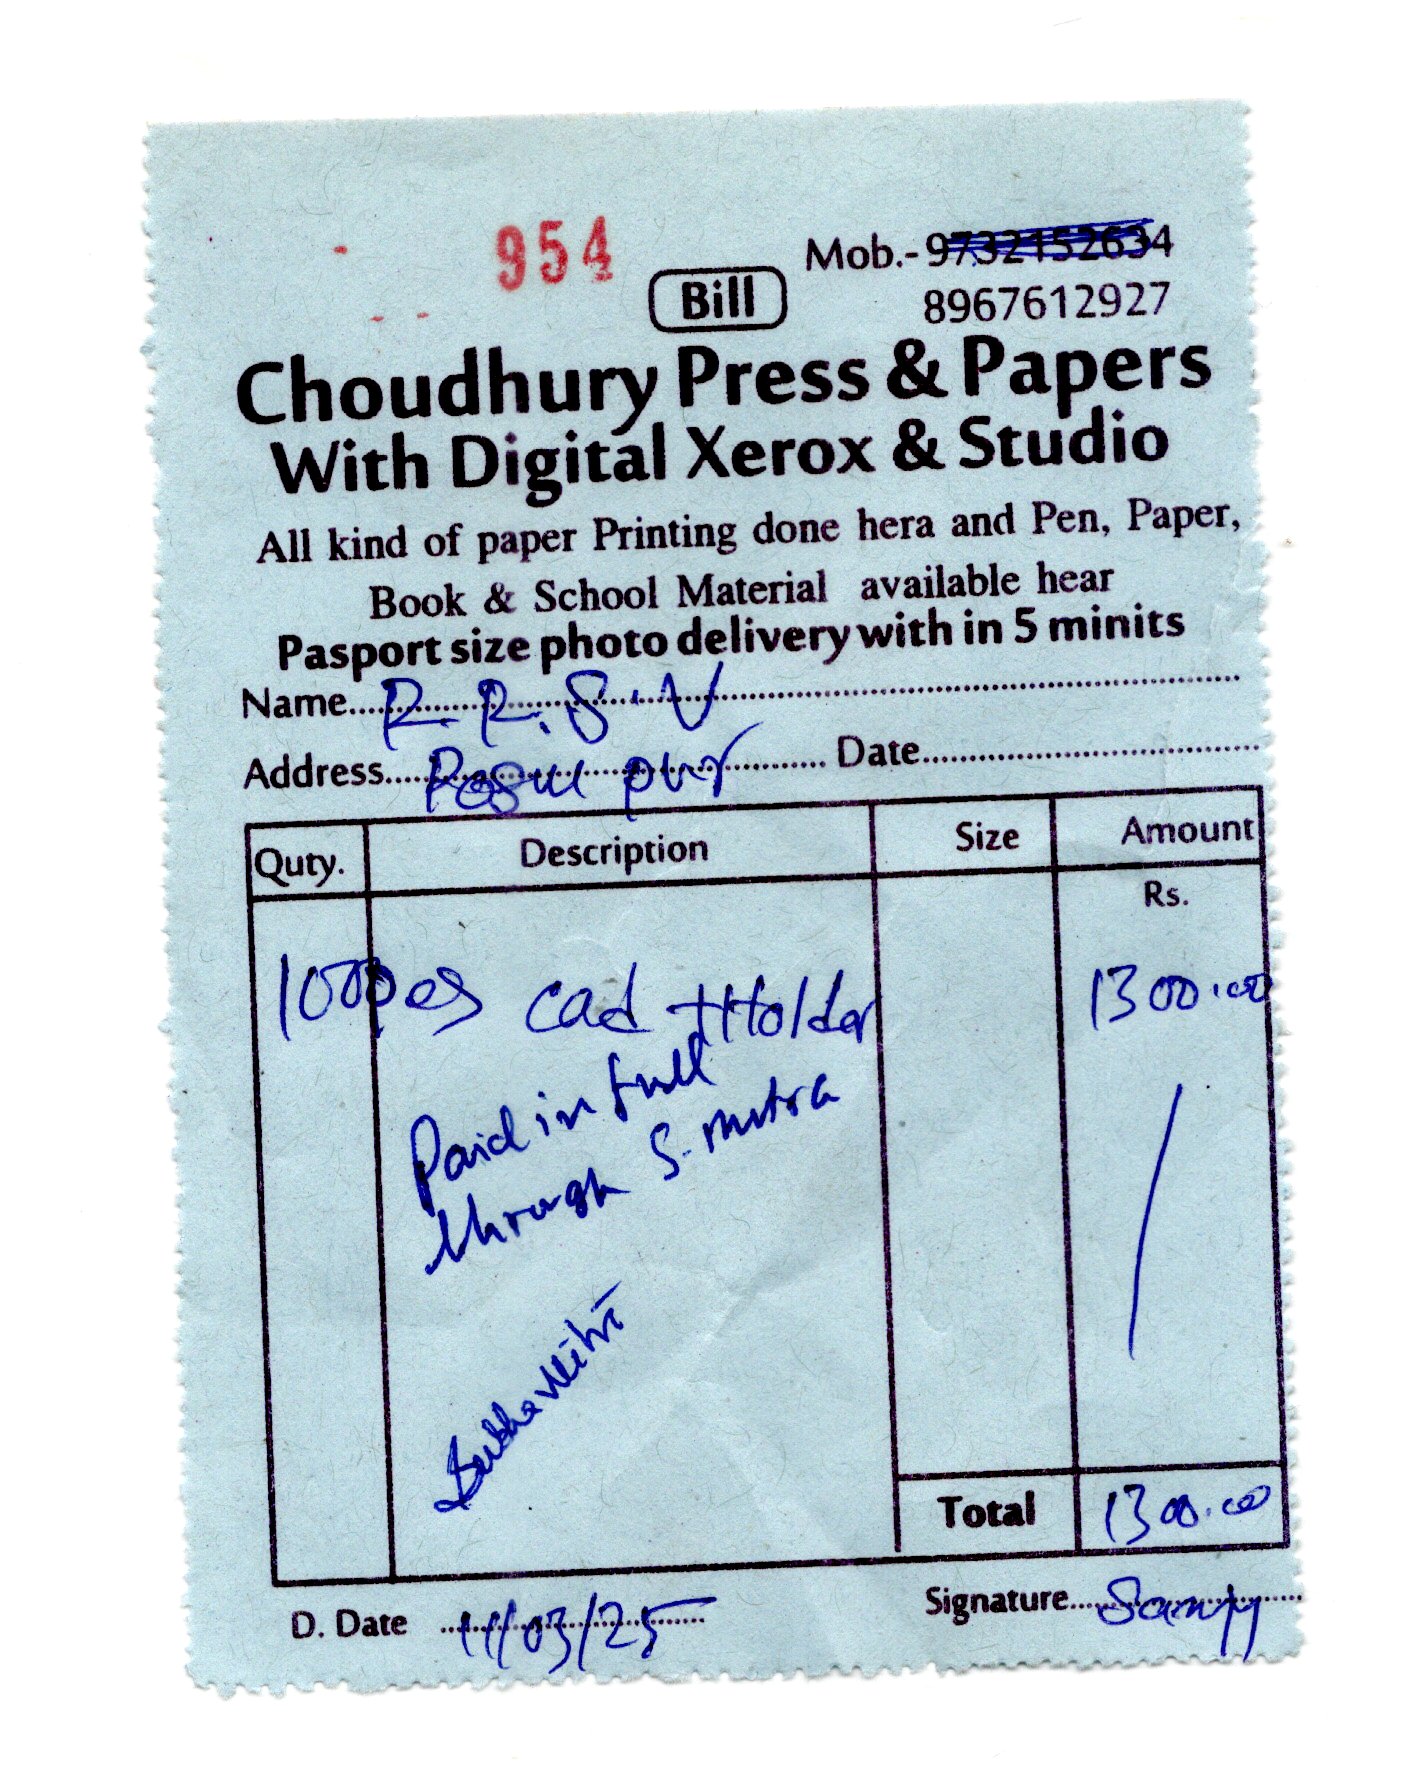 954
Mob.- 9732152634
Bill
8967612927
Choudhury Press & Papers
With Digital Xerox & Studio
All kind of paper Printing done hera and Pen, Paper,
Book & School Material available hear
Pasport size photo delivery with in 5 minits
Name R.R.S.V
Address Rosul pur Date
Quty. Description Size Amount
Rs.
100pes cad Holder 1300.00
Paid in full
through S. Mitra
Total 1300.00
D. Date 11/03/25 Signature